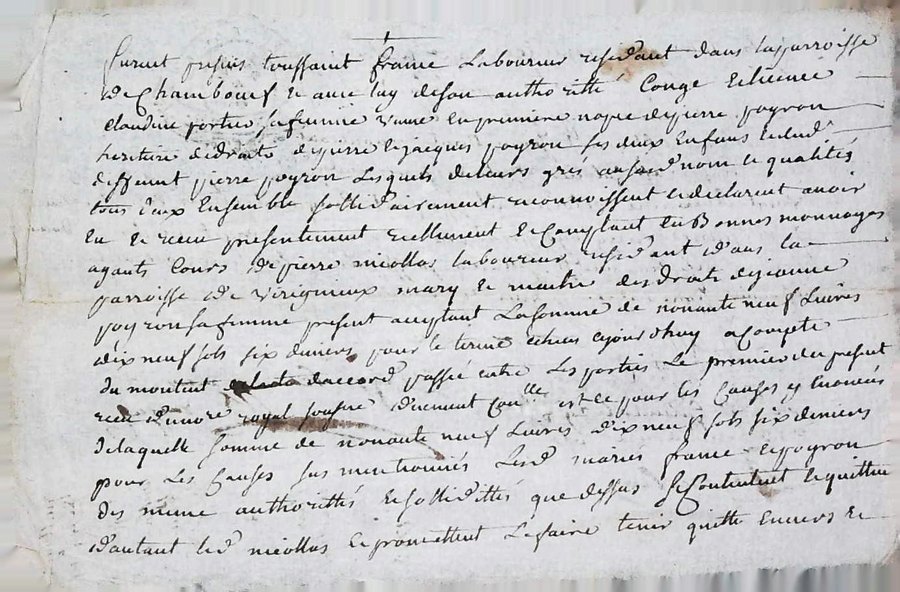 Furent presens toussaint franie Laboureur residant dans laparroisse
de Chambœuf & avec luy de son authoritté Congé & licence
claudine portier sa femme veuve En premiere nopce de pierre poyron
heritiere de droits de pierre & jacques poyron ses deux Enfans & dud
deffunt pierre poyron Lesquels de leurs grés nom & qualités
tous deux Ensemble sollidairement reconnoissent & declarent avoir
Eu & receu presentement reellement & Comptant En Bonnes monnoyes
ayants Cours de pierre nicollas laboureur residant dans la
parroisse de virigneux mary & maitre des droits de jeanne
poyron sa femme present acceptant La somme de nonante neuf Livres
dix neuf sols six deniers pour le terme echeus cejourdhuy a Compte
du montent daccord passé entre Les parties Le premier du present
receu royal soussigné duement Con.lle est ce pour les Causes y Enoncées
de laquelle somme de nonante neuf Livres dix neuf sols six deniers
pour Les Causes sus mentionnées Lesd mariés franie & poyron
des meme authorittés & sollidittés que dessus se Contentent & quittent
dautant led nicollas & promettent Le faire tenir quitte Envers &